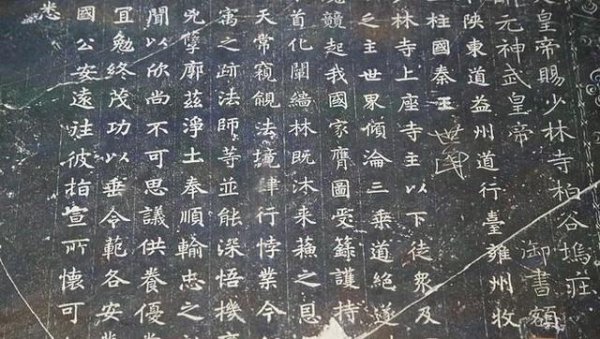 皇帝賜少林寺柏谷塢莊
元神武皇帝 御書額
陝東道益州道行臺雍州牧
柱國秦王世民
林寺上座寺主以下徒衆及
之主世界傾淪三乘道絕
魔競起我國家膺圖受籙護持
首化闡緇林既沐來蘇之恩
天常窺覦法境肆行悖業今
寓之跡法師等並能深悟機
兇孽廓茲淨土奉順輸忠之
聞以欣尚不可思議供養優
宜勉終茂功以垂令範各安
國公安遠往彼指宣所懷可
悉